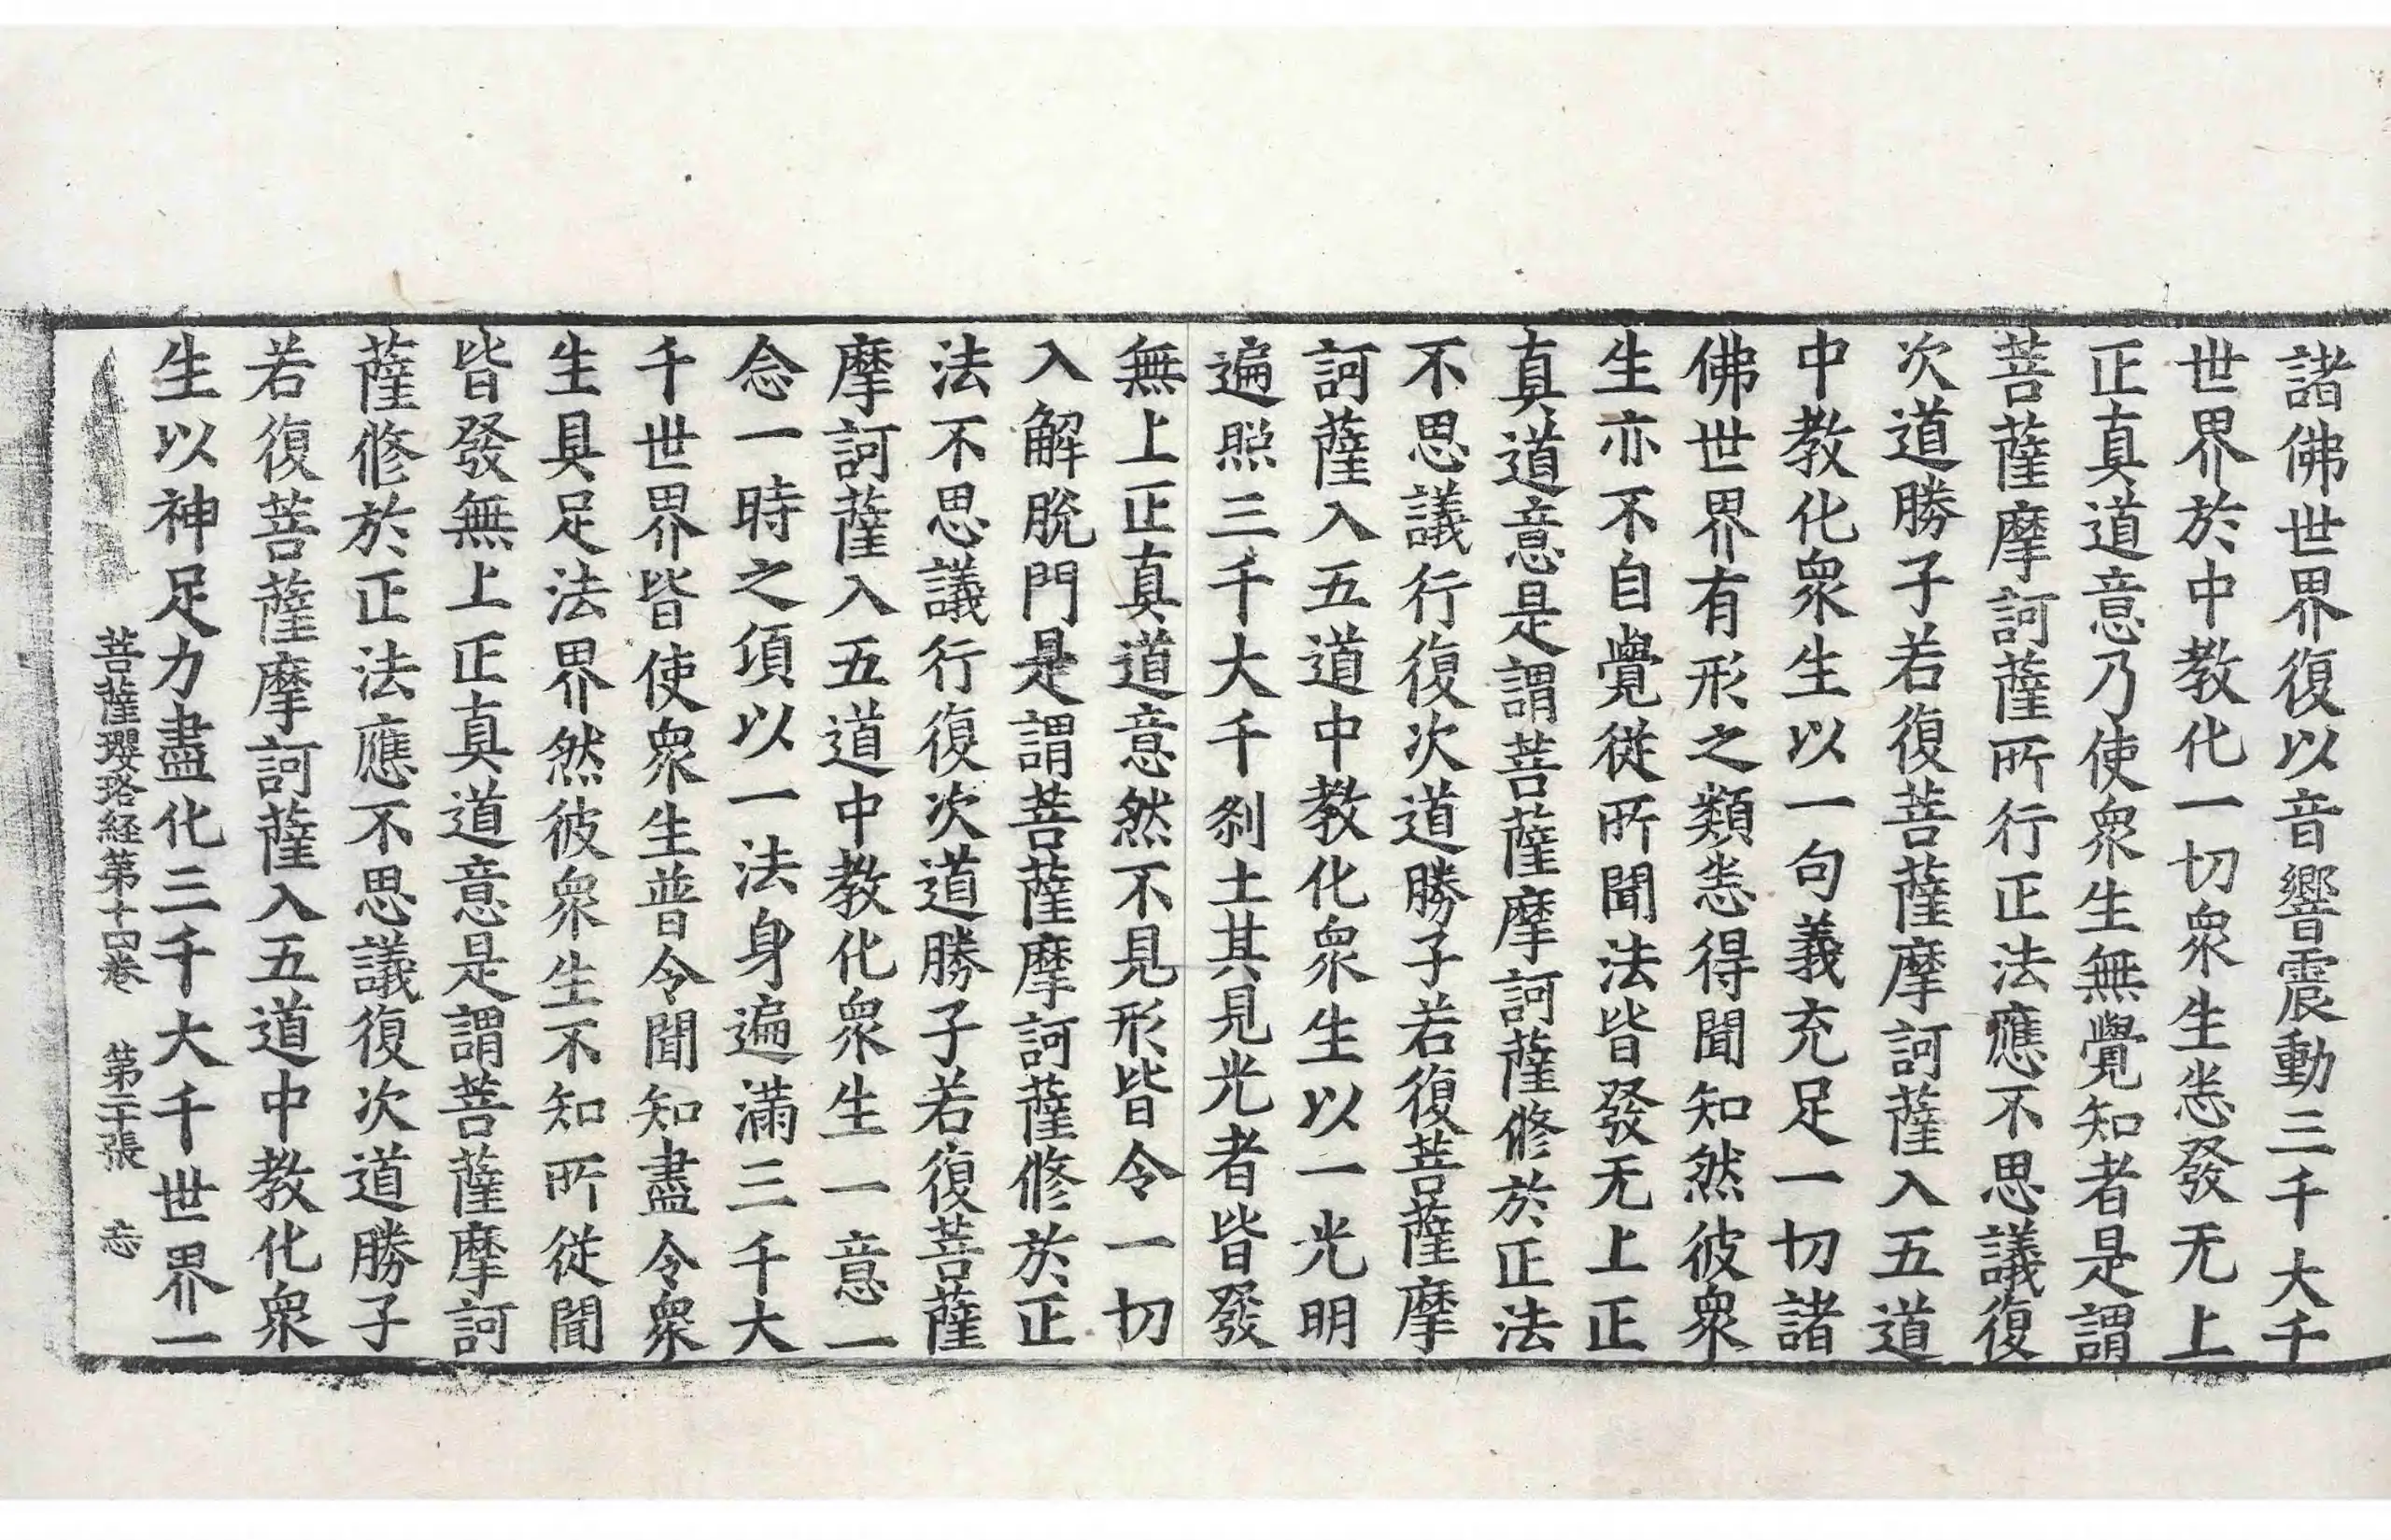 諸佛世界復以音響震動三千大千
世界於中教化一切衆生悉發无上
正真道意乃使衆生無覺知者是謂
菩薩摩訶薩所行正法應不思議復
次道勝子若復菩薩摩訶薩入五道
中教化衆生以一句義充足一切諸
佛世界有形之類悉得聞知然彼衆
生亦不自覺從所聞法皆發无上正
真道意是謂菩薩摩訶薩修於正法
不思議行復次道勝子若復菩薩摩
訶薩入五道中教化衆生以一光明
遍照三千大千刹土其見光者皆發
無上正真道意然不見形皆令一切
入解脫門是謂菩薩摩訶薩修於正
法不思議行復次道勝子若復菩薩
摩訶薩入五道中教化衆生一意一
念一時之須以一法身遍滿三千大
千世界皆使衆生普令聞知盡令衆
生具足法界然彼衆生不知所從聞
皆發無上正真道意是謂菩薩摩訶
薩修於正法應不思議復次道勝子
若復菩薩摩訶薩入五道中教化衆
生以神足力盡化三千大千世界一
菩薩瓔珞経第十四卷 第二十張 忘